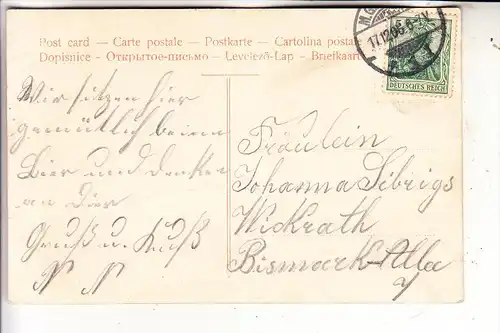 Post card — Carte postale — Postkarte — Cartolina postale
Dopisnice — Открытое-письмо — Levelező-Lap — Briefkaart
M.G
17.12.06.6-7V.
DEUTSCHES REICH
Wir sitzen hier
gemütlich beim
Bier und denken
an Dir
Gruß u. Kuß
N N
Fräulein
Johanna Sibrigs
Wickrath
Bismarck-Alla